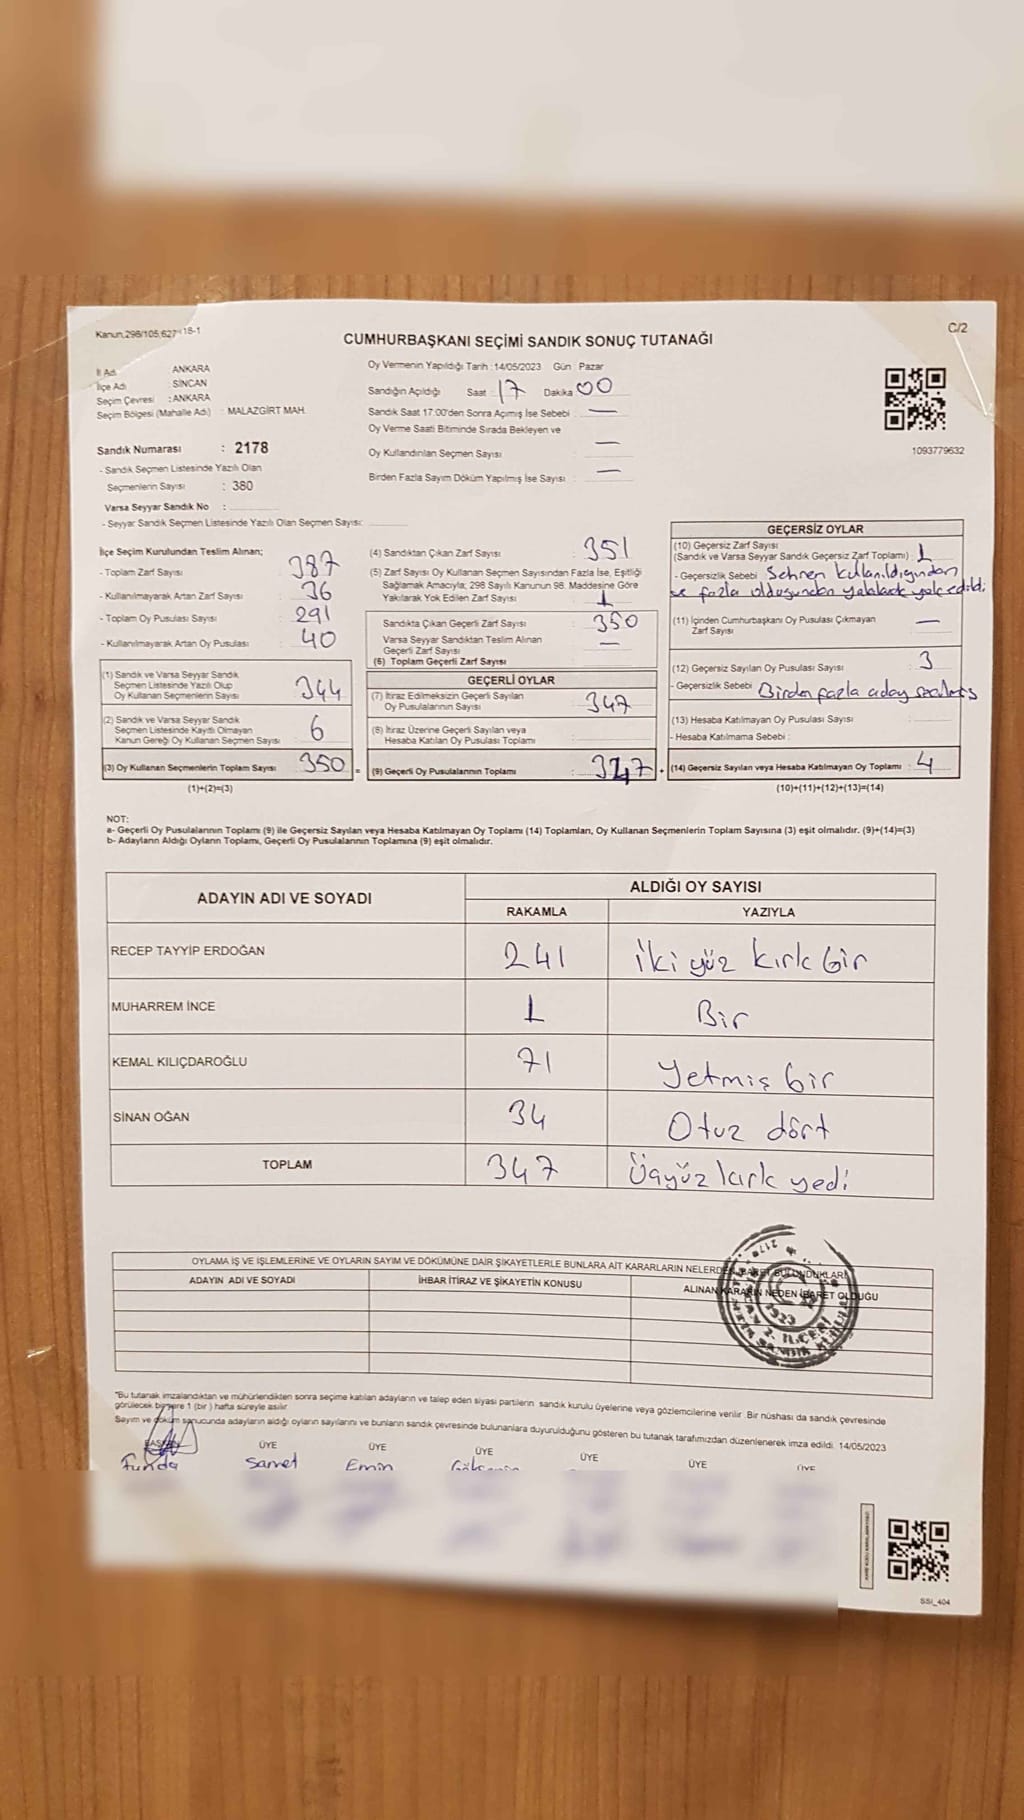 Kanun,298/105,627118-1
C/2
CUMHURBAŞKANI SEÇİMİ SANDIK SONUÇ TUTANAĞI
İl Adı : ANKARA
İlçe Adı : SİNCAN
Seçim Çevresi : ANKARA
Seçim Bölgesi (Mahalle Adı) : MALAZGİRT MAH.
Sandık Numarası : 2178
- Sandık Seçmen Listesinde Yazılı Olan
Seçmenlerin Sayısı : 380
Varsa Seyyar Sandık No :
- Seyyar Sandık Seçmen Listesinde Yazılı Olan Seçmen Sayısı:
Oy Vermenin Yapıldığı Tarih :14/05/2023 Gün : Pazar
Sandığın Açıldığı Saat : 17 Dakika 00
Sandık Saat 17:00'den Sonra Açımış İse Sebebi : —
Oy Verme Saati Bitiminde Sırada Bekleyen ve
Oy Kullandırılan Seçmen Sayısı : —
Birden Fazla Sayım Döküm Yapılmış İse Sayısı : —
1093779632
İlçe Seçim Kurulundan Teslim Alınan;
- Toplam Zarf Sayısı : 387
- Kullanılmayarak Artan Zarf Sayısı : 36
- Toplam Oy Pusulası Sayısı : 291
- Kullanılmayarak Artan Oy Pusulası : 40
(1) Sandık ve Varsa Seyyar Sandık
Seçmen Listesinde Yazılı Olup
Oy Kullanan Seçmenlerin Sayısı : 344
(2) Sandık ve Varsa Seyyar Sandık
Seçmen Listesinde Kayıtlı Olmayan
Kanun Gereği Oy Kullanan Seçmen Sayısı : 6
(3) Oy Kullanan Seçmenlerin Toplam Sayısı : 350 =
(1)+(2)=(3)
(4) Sandıktan Çıkan Zarf Sayısı : 351
(5) Zarf Sayısı Oy Kullanan Seçmen Sayısından Fazla İse, Eşitliği
Sağlamak Amacıyla; 298 Sayılı Kanunun 98. Maddesine Göre
Yakılarak Yok Edilen Zarf Sayısı : 1
Sandıkta Çıkan Geçerli Zarf Sayısı : 350
Varsa Seyyar Sandıktan Teslim Alınan
Geçerli Zarf Sayısı : —
(6) Toplam Geçerli Zarf Sayısı
GEÇERLİ OYLAR
(7) İtiraz Edilmeksizin Geçerli Sayılan
Oy Pusulalarının Sayısı : 347
(8) İtiraz Üzerine Geçerli Sayılan veya
Hesaba Katılan Oy Pusulası Toplamı :
(9) Geçerli Oy Pusulalarının Toplamı : 347 +
GEÇERSİZ OYLAR
(10) Geçersiz Zarf Sayısı
(Sandık ve Varsa Seyyar Sandık Geçersiz Zarf Toplamı) : 1
- Geçersizlik Sebebi : Sehren kullanıldığından
ve fazla olduğundan yakılarak yok edildi
(11) İçinden Cumhurbaşkanı Oy Pusulası Çıkmayan
Zarf Sayısı : —
(12) Geçersiz Sayılan Oy Pusulası Sayısı : 3
- Geçersizlik Sebebi : Birden fazla aday
(13) Hesaba Katılmayan Oy Pusulası Sayısı :
- Hesaba Katılmama Sebebi :
(14) Geçersiz Sayılan veya Hesaba Katılmayan Oy Toplamı : 4
(10)+(11)+(12)+(13)=(14)
NOT:
a- Geçerli Oy Pusulalarının Toplamı (9) ile Geçersiz Sayılan veya Hesaba Katılmayan Oy Toplamı (14) Toplamları, Oy Kullanan Seçmenlerin Toplam Sayısına (3) eşit olmalıdır. (9)+(14)=(3)
b- Adayların Aldığı Oyların Toplamı, Geçerli Oy Pusulalarının Toplamına (9) eşit olmalıdır.
ADAYIN ADI VE SOYADI
ALDIĞI OY SAYISI
RAKAMLA YAZIYLA
RECEP TAYYİP ERDOĞAN 241 iki yüz kırk bir
MUHARREM İNCE 1 Bir
KEMAL KILIÇDAROĞLU 71 Yetmiş bir
SİNAN OĞAN 34 Otuz dört
TOPLAM 347 Üçyüz kırk yedi
OYLAMA İŞ VE İŞLEMLERİNE VE OYLARIN SAYIM VE DÖKÜMÜNE DAİR ŞİKAYETLERLE BUNLARA AİT KARARLARIN NELERDEN İBARET BULUNDUKLARI
ADAYIN ADI VE SOYADI
İHBAR İTİRAZ VE ŞİKAYETİN KONUSU
ALINAN KARARIN NEDEN İBARET OLDUĞU
*Bu tutanak imzalandıktan ve mühürlendikten sonra seçime katılan adayların ve talep eden siyasi partilerin sandık kurulu üyelerine veya gözlemcilerine verilir. Bir nüshası da sandık çevresinde
görülecek bir yere 1 (bir ) hafta süreyle asılır.
Sayım ve döküm sonucunda adayların aldığı oyların sayılarını ve bunların sandık çevresinde bulunanlara duyurulduğunu gösteren bu tutanak tarafımızdan düzenlenerek imza edildi. 14/05/2023
BAŞKAN ÜYE ÜYE ÜYE ÜYE ÜYE ÜYE
Funda Samet Emin
SSI_404